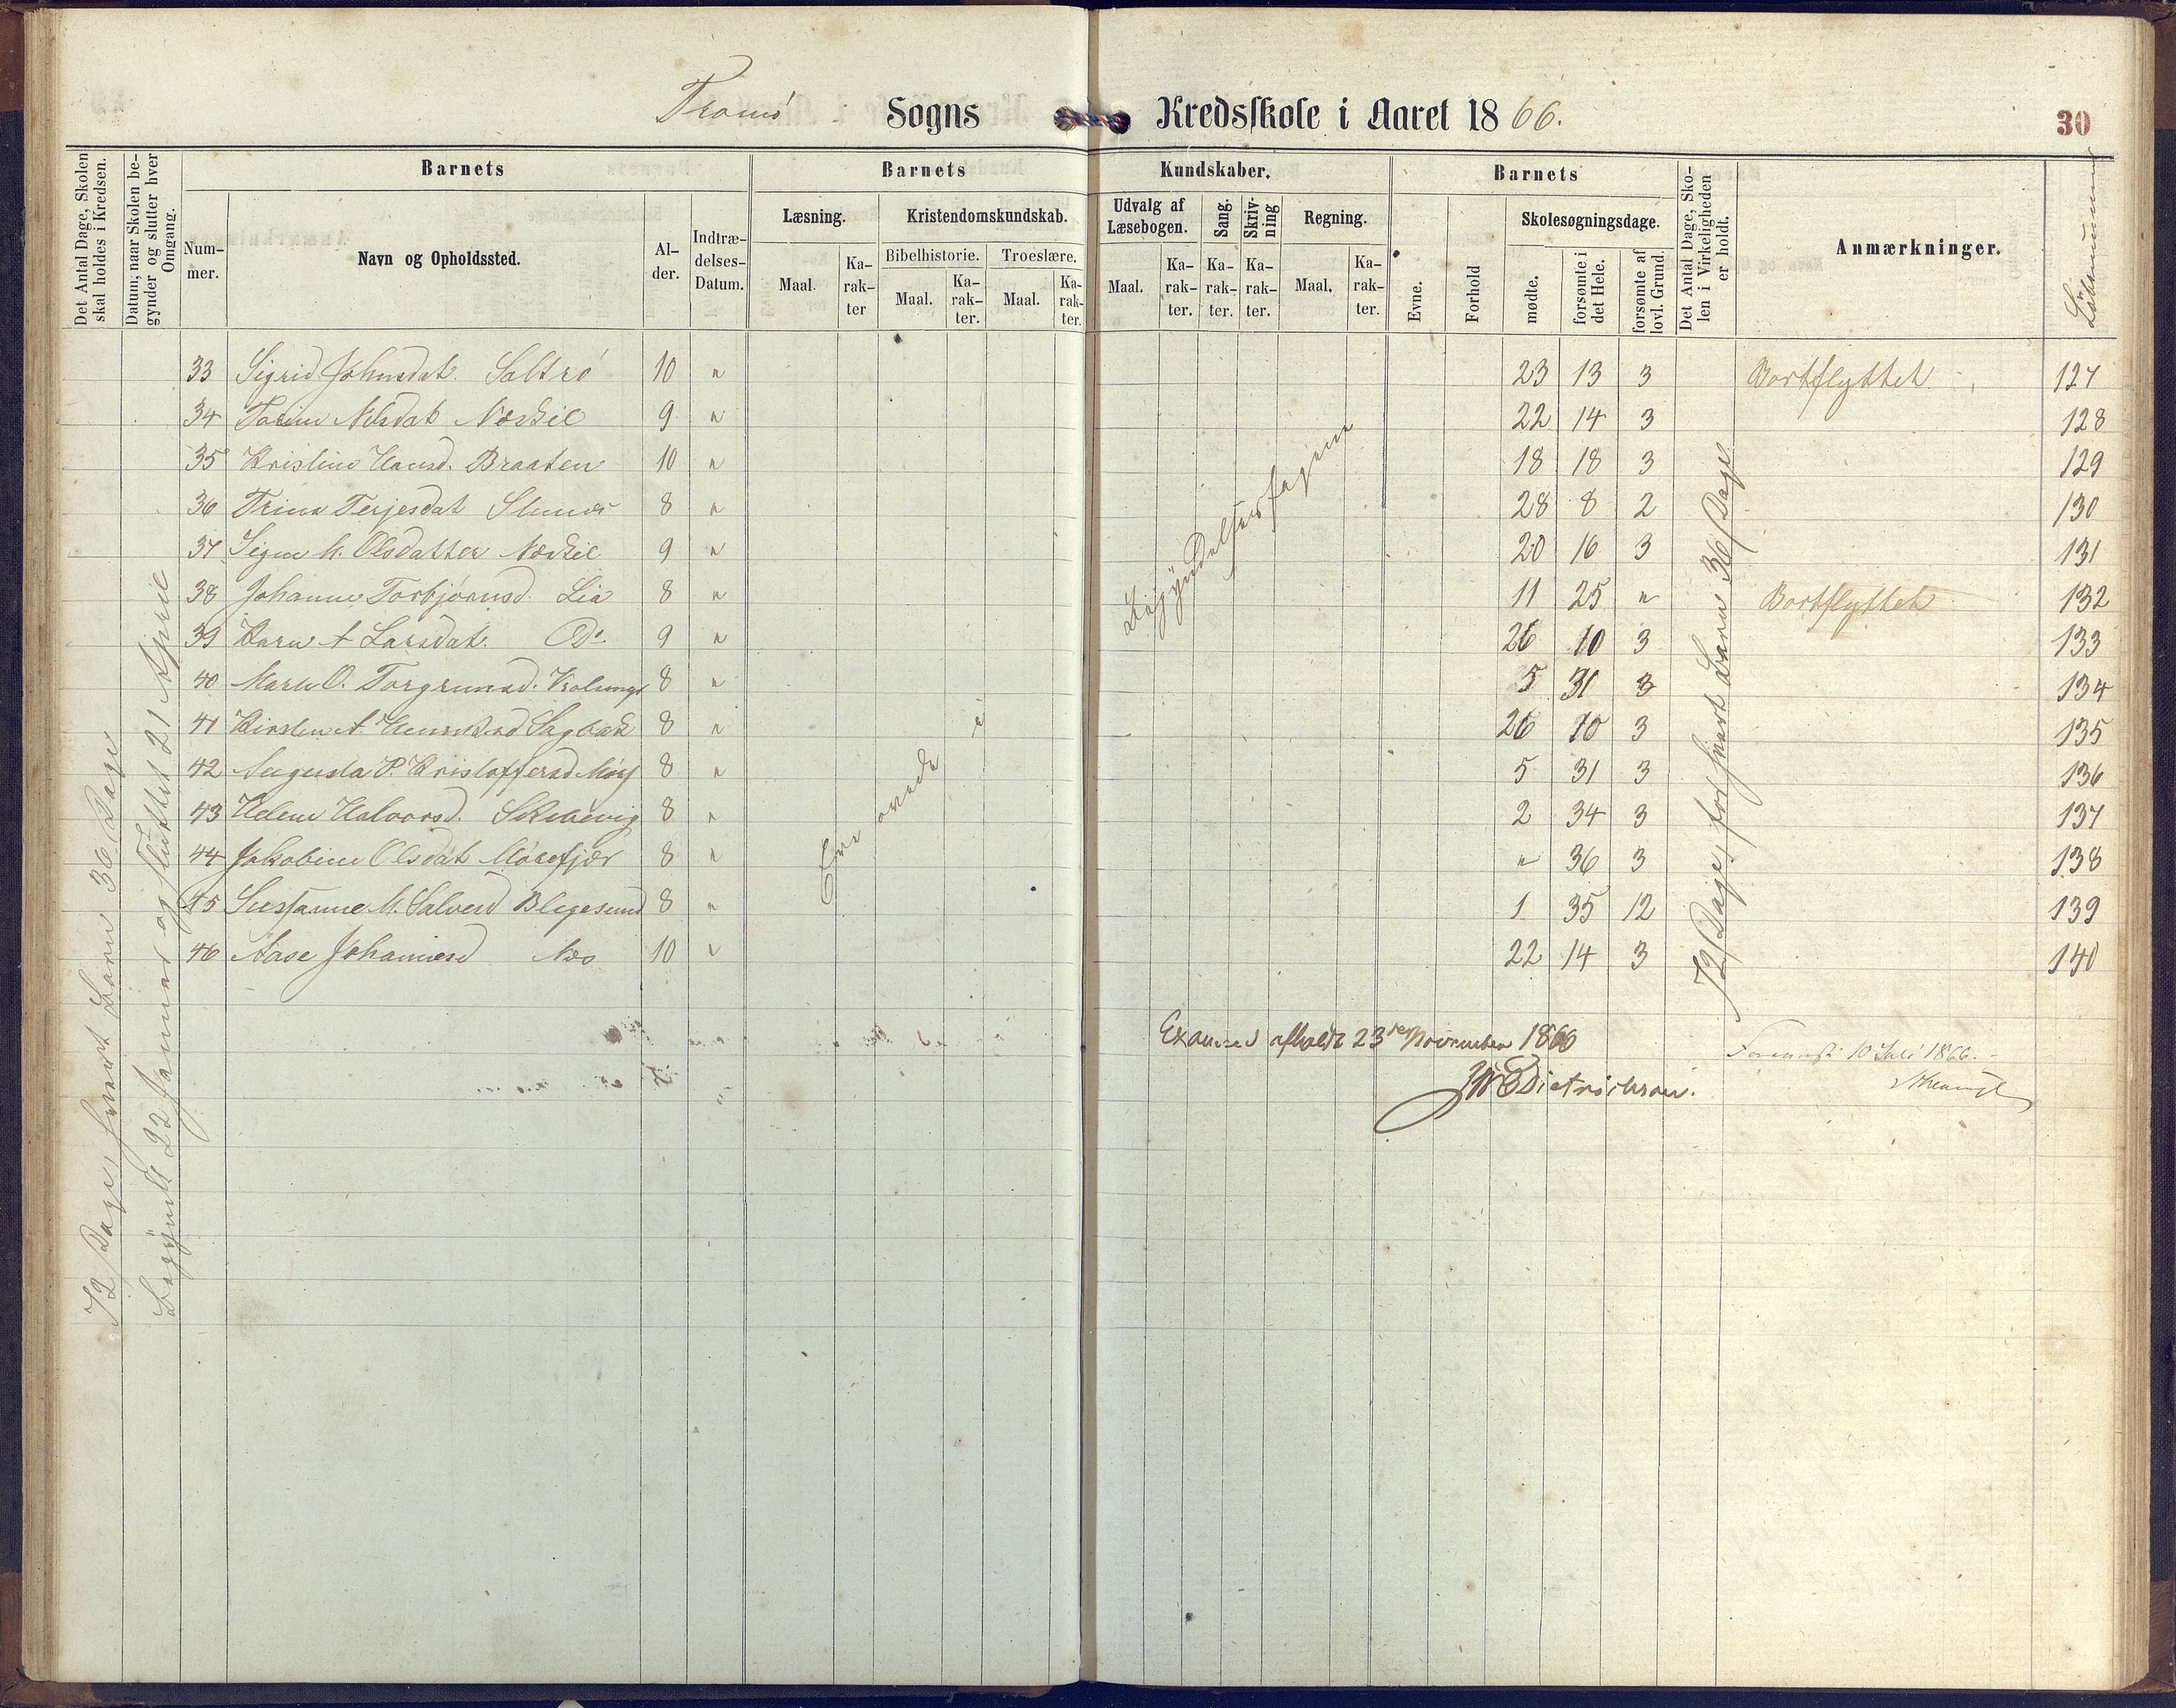 Tromö Sogns Kredsskole i Aaret 1866.
30
Det Antal Dage, Skolen skal holdes i Kredsen.
Datum, naar Skolen begynder og slutter hver Omgang.
Barnets
Nummer.
Navn og Opholdssted.
Alder.
Indtrædelses-Datum.
Barnets Kundskaber.
Læsning.
Maal.
Karakter
Kristendomskundskab.
Bibelhistorie.
Maal.
Karakter.
Troeslære.
Maal.
Karakter.
Udvalg af Læsebogen.
Maal.
Karakter.
Sang.
Karakter.
Skrivning
Karakter.
Regning.
Maal.
Karakter.
Barnets
Evne.
Forhold
Skolesøgningsdage.
mødte.
forsømte i det Hele.
forsømte af lovl. Grund.
Det Antal Dage, Skolen i Virkeligheden er holdt.
Anmærkninger.
Löbenummer
33 Sigrid Johnsdat. Saltrö 10 " 23 13 3 Bortflyttet 127
34 Nilsdat Næskil 9 " 22 14 3 128
35 Kristine Hansd. Braaten 10 " 18 18 3 129
36 Trine Terjesdat 8 " 28 8 2 130
37 Signe M. Olsdatter Næskil 9 " 20 16 3 131
38 Johanne Torbjörnsd. Lia 8 " 11 25 " Bortflyttet 132
39 Karen A Larsdat. Do 9 " 26 10 3 133
40 Maren O. Torgrimsd. 8 " 5 31 3 134
41 Kirsten A. Sagbak 8 " 26 10 3 135
42 Augusta P. Kristoffersd 8 " 5 31 3 136
43 Helene Halvorsd. Skilsövig 8 " 2 34 3 137
44 Jakobine Olsdat Möresfjær 8 " " 36 3 138
45 Susanne M. Salvesd Blegesund 8 " 1 35 12 139
46 Aase Johannesd Næs 10 " 22 14 3 140
72 Dage, hvert Barn 36 Dage
Begyndt 22 Januar og sluttet 21 April
Ere ovede i
Begyndelsesfagene
72 Dage, for hvert Barn 36 Dage
Examen afholdt 23de November 1866
Dietrichson.
10 Juli 1866.